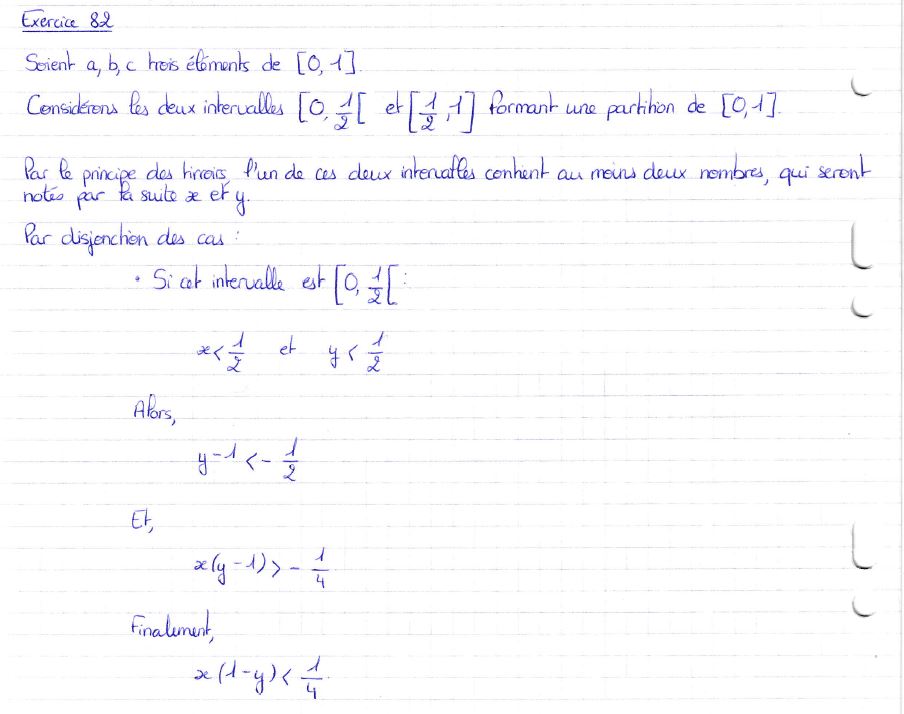 Exercice 82
Soient a, b, c trois éléments de [0,1].
Considérons les deux intervalles [0, 1/2[ et [1/2, 1] formant une partition de [0,1].
Par le principe des tiroirs, l'un de ces deux intervalles contient au moins deux nombres, qui seront
notés par la suite x et y.
Par disjonction des cas :
• Si cet intervalle est [0, 1/2[ :
x < 1/2 et y < 1/2
Alors,
y - 1 < - 1/2
Et,
x(y - 1) > - 1/4
Finalement,
x(1 - y) < 1/4